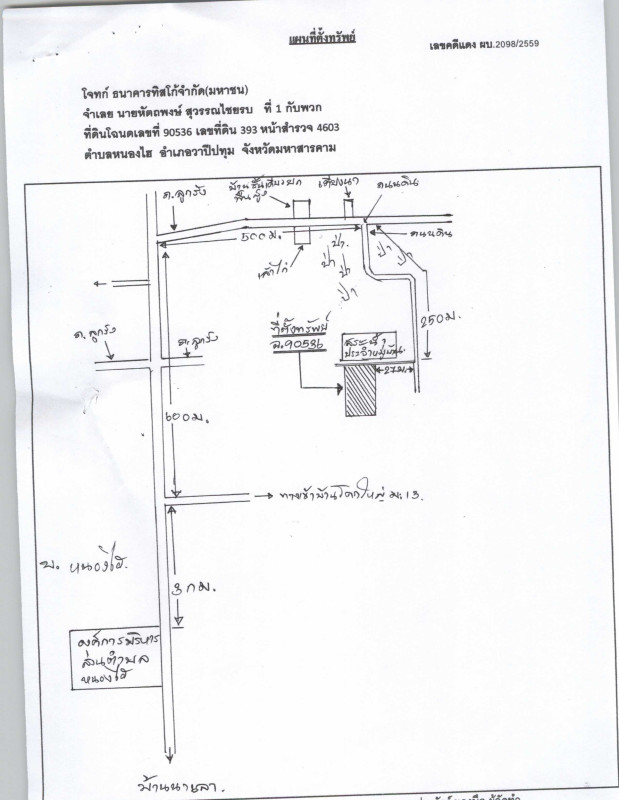 แผนที่ตั้งทรัพย์
เลขคดีแดง ผบ.2098/2559
โจทก์ ธนาคารทิสโก้จำกัด(มหาชน)
จำเลย นายหัตถพงษ์ สุวรรณไชยรบ ที่ 1 กับพวก
ที่ดินโฉนดเลขที่ 90536 เลขที่ดิน 393 หน้าสำรวจ 4603
ตำบลหนองไฮ อำเภอวาปีปทุม จังหวัดมหาสารคาม
ถ.ลูกรัง
บ้านชั้นเดียวยก
พื้นสูง
เถียงนา
ถนนดิน
500 ม.
ถนนดิน
เล้าไก่
ป่า
ป่า
ป่า
ป่า
ป่า
ป่า
250 ม.
ถ.ลูกรัง
ถ.ลูกรัง
ที่ตั้งทรัพย์
ฉ.90536
สระน้ำ
ประจำหมู่บ้าน
27 ม.
600 ม.
ทางเข้าบ้านโคกใหญ่ ม.13.
บ. หนองไฮ.
3 กม.
องค์การบริหาร
ส่วนตำบล
หนองไฮ